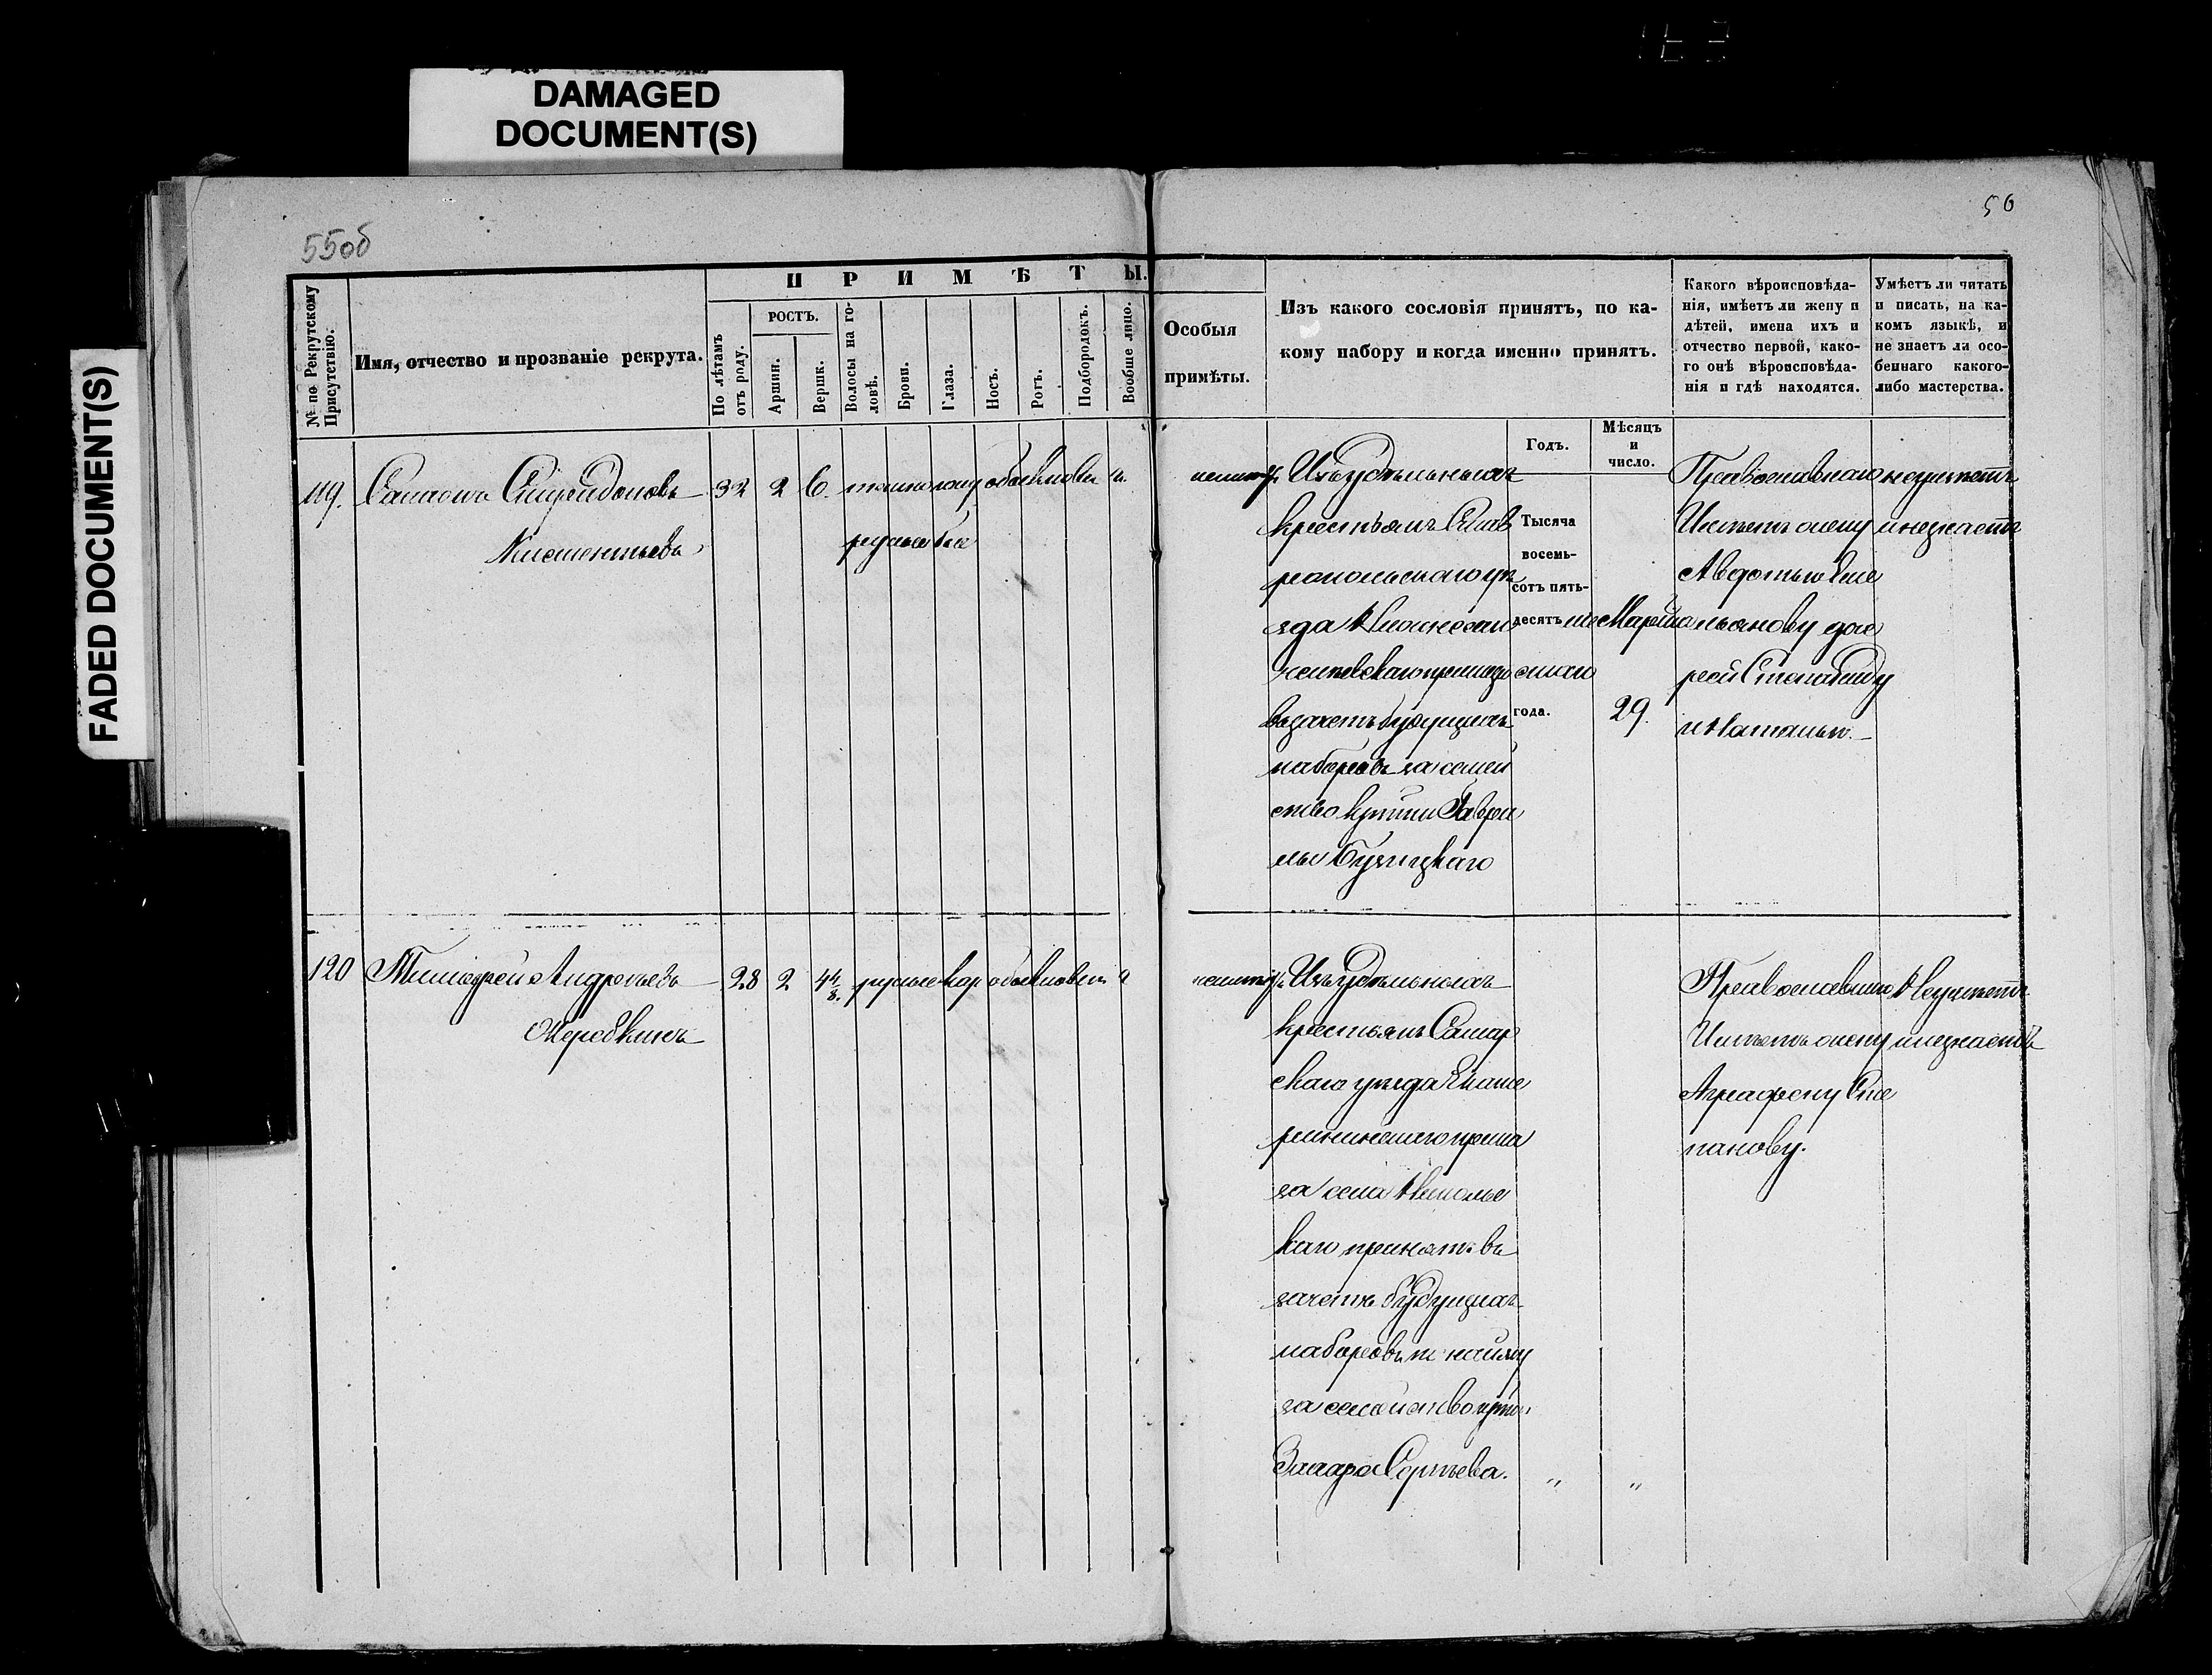 DAMAGED
DOCUMENT(S)
FADED DOCUMENT(S)
55об
56
ПРИМѢТЫ.
№ по Рекрутскому Присутствію.
Имя, отчество и прозваніе рекрута.
По лѣтамъ отъ роду.
РОСТЪ.
Аршин.
Вершк.
Волосы на головѣ.
Брови.
Глаза.
Носъ.
Ротъ.
Подбородокъ.
Вообще лицо.
Особыя
примѣты.
Изъ какого сословія принятъ, по ка-
кому набору и когда именно принятъ.
Какого вѣроисповѣда-
нія, имѣетъ ли жену и
дѣтей, имена ихъ и
отчество первой, како-
го онѣ вѣроисповѣда-
нія и гдѣ находятся.
Умѣетъ ли читать
и писать, на ка-
комъ языкѣ, и
не знаетъ ли осо-
беннаго какого-
либо мастерства.
Годъ.
Мѣсяцъ
и
число.
119. Спиридоновъ 32 2 6
русые
Изъ удѣльныхъ
крестьянъ Став
ропольскаго уѣ
зда
въ зачетъ будущихъ
наборовъ за семей
ство Гаври
лы Бузицкаго
Тысяча
восемь-
сотъ пять-
десятъ
года.
Марта
29.
Православнаго
Имѣетъ жену
Авдотью Еме
льянову доче
рей Степаниду
и Наталью.
не умѣетъ
и незнаетъ
120 Тимофей Андреевъ 28 2 4 4/8. русые кар обыкновен
Жеребкинъ
Изъ удѣльныхъ
крестьянъ Самар
скаго уѣзда Екате
рининскаго прика
за села Николь
каго принятъ въ
зачетъ будущихъ
наборовъ по найму
за семейство
Захара Сергѣева. „ „
Православнаго
Имѣетъ жену
Аграфену Сте
панову.
Неумѣетъ
и незнаетъ